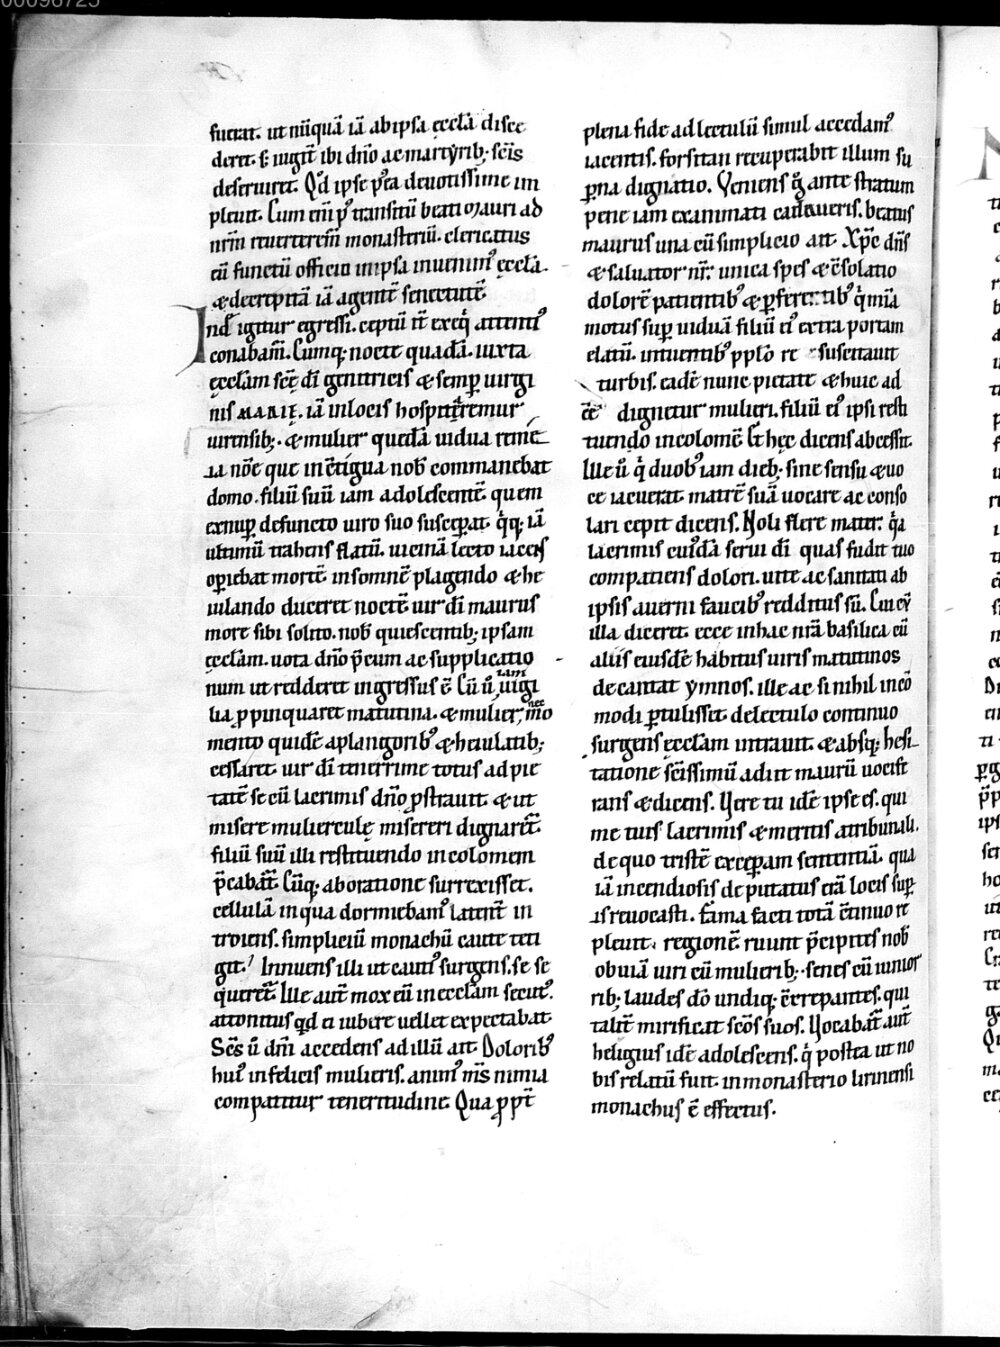 fuerat. ut nūquā iā ab ipsa ęcclā disce
deret. s; iugit̄ ibi dn̄o ac martyrib; sc̄is
deseruiret. Qd̄ ipse p̄ea deuotissime im
pleuit. Cum eni pꝰ transitū beati Mauri ad
nr̄m reuerterem̄ monasteriū. clericatus
eū functū officio in ipsa inuenimꝰ ęcclā.
& decrepitā iā agentē senectutē.
Ind̄ igitur egressi. ceptū it̄ exeq̄ attentiꝰ
conabam̄. Cumq; nocte quadā. iuxta
ęcclam sc̄ę dī genitricis & semp̱ uirgi
nis MARIĘ. iā in locis hospitaremur
uirensib;. & mulier quedā uidua remē
ia nōe que in c̄tigua nob̄ commanebat
domo. filiū suū iam adolescentē. quem
ex nup̱ defuncto uiro suo suscep̱at. q̄q; iā
ultimū trahens flatū. uicinā lecto iacens
op̱iebat mortē. insomnē plagendo & he
iulando duceret noctē uir dī maurus
more sibi solito. nob̄ quiescentib; ipsam
ęcclam. uota dn̄o p̄cum ac supplicatio
num ut redderet ingressus ē. Cū ū iam uigi
lia p̱pinquaret matutina. & mulier, nec mo
mento quidē a plangoribꝰ & heiulatib;
cessaret. uir dī tenerrime totus ad pie
tatē se cū lacrimis dn̄o p̱strauit. & ut
misere mulierculę misereri dignaret̄.
filiū suū illi restituendo incolomem
p̄cabat̄. Cūq; ab oratione surrexisset.
cellulā in qua dormiebamꝰ latent̄ in
troiens. simpliciū monachū caute teti
git. Innuens illi ut cautiꝰ surgens. se se
queret̄. Ille aut̄ mox eū in ecclam secutꝰ.
attonitus qd̄ ei iubere uellet expectabat.
Sc̄s ū dn̄i accedens ad illū ait. Doloribꝰ
huiꝰ infelicis mulieris. animꝰ m̄s nimia
compatitur teneritudine. Qua p̱pt̄
plena fide ad lectulū simul accedamꝰ
iacentis. forsitan recuperabit illum su
p̱na dignatio. Veniens ḡ ante stratum
pene iam exanimati cadaueris. beatus
maurus una cū simplicio ait. Xp̄e dn̄s
& saluator nr̄. unica spes & c̄solatio
dolorē patientibꝰ & p̱ferentibꝰ q̄ mīa
motus sup̱ uiduā filiū eiꝰ extra portam
elatū. intuentibꝰ pp̄lo re suscitauit
turbis. eadē nunc pietate & huic ad
ēē dignetur mulieri. filiū eiꝰ ipsi resti
tuendo incolomē. Et hęc dicens abcessit.
Ille ū q̄ duobꝰ iam dieb; sine sensu & uo
ce iacuerat. matrē suā uocare ac conso
lari cepit dicens. Noli flere mater. q̄a
lacrimis cuiꝰdā serui dī quas fudit tuo
compatiens dolori. uite ac sanitati ab
ipsis auerni faucibꝰ redditus sū. Cui cū
illa diceret. ecce in hac nr̄a basilica cū
aliis eiusdē habitus uiris matutinos
decantat ymnos. ille ac si nihil incō
modi p̱tulisset. de lectulo continuo
surgens ęcclam intrauit. & absq; hesi
tatione sc̄issimū adiit maurū uocife
rans & dicens. Uere tu idē ipse es. qui
me tuis lacrimis & meritis a tribunali.
de quo tristē excep̱am sententiā. qua
iā incendiosis deputatus erā locis sup̱
is reuocasti. Fama facti totā c̄tinuo re
pleuit regionē ruunt p̄cipites nob̄
obuiā uiri cū mulierib;. senes cū iunior
rib; laudes dō undiq; c̄crepantes. qui
talit̄ mirificat sc̄os suos. Uocabat̄ aut̄
heligius idē adolescens. q̄ postea ut no
bis relatū fuit. in monasterio lirinensi
monachus ē effectus.